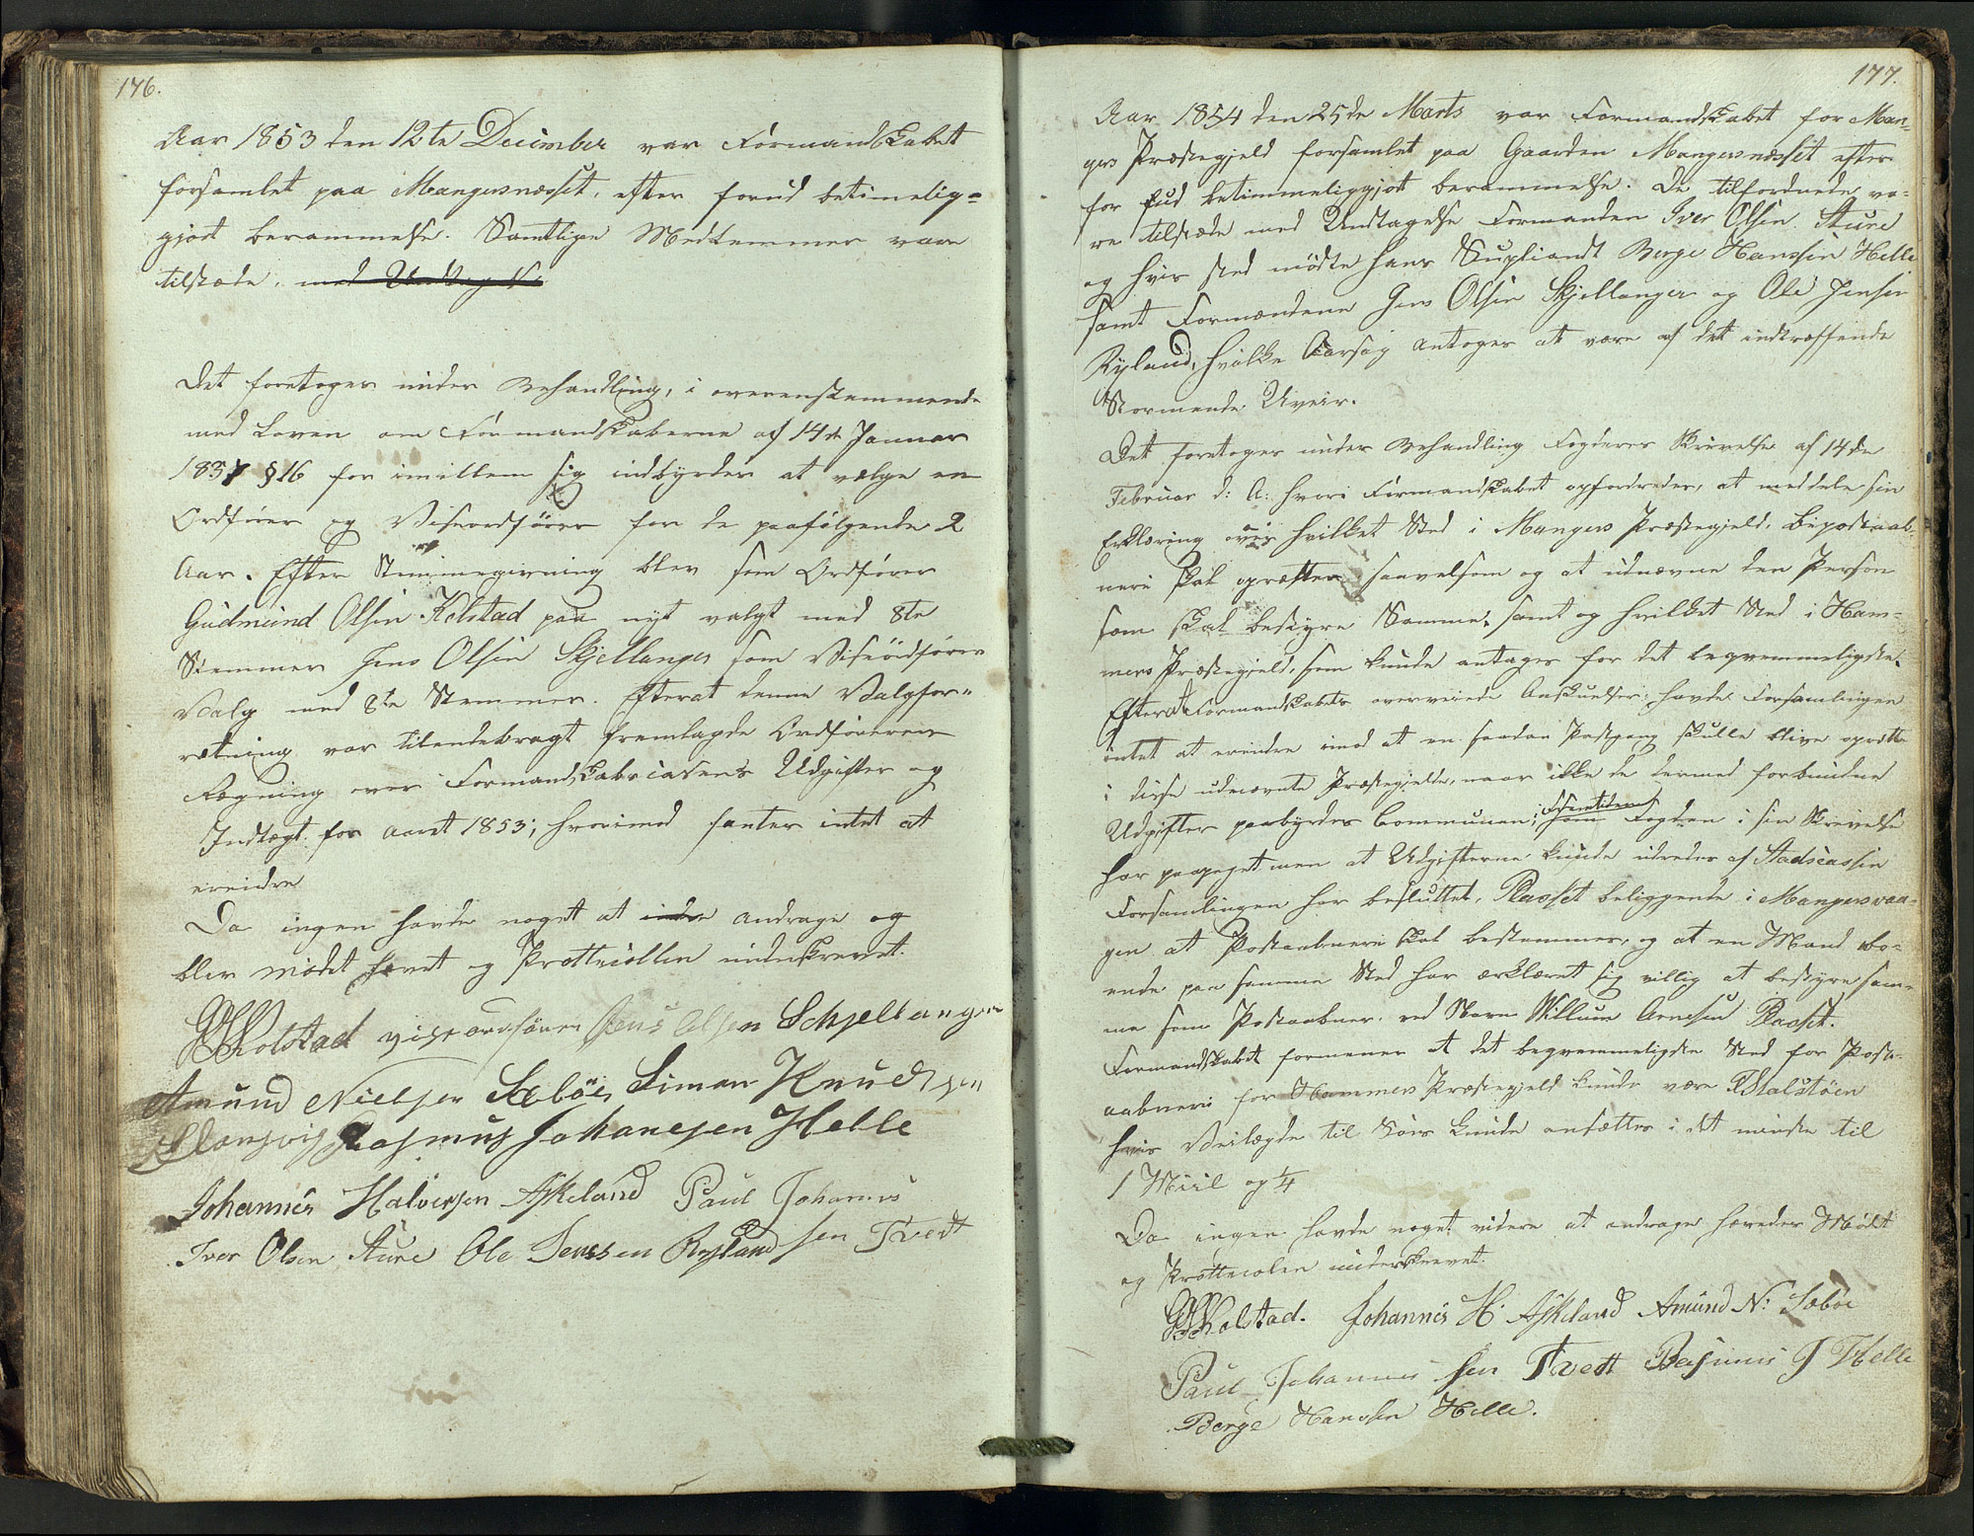 176.
Aar 1853 den 12te December var Formandskabet
forsamlet paa Mangersnæsset, efter forud betimelig=
gjort berammelse. Samtlige Medlemmer vare
tilstæde. med Undtagelse
Det foretoges under Behandling, i overenstemmende
med Loven om Formandskaberne af 14de Januar
1837 §16 for imillem sig indbyrdes at vælge en
Ordfører og Viseordfører for de paafølgende 2
Aar. Efter Stemmegivning blev som Ordfører
Gudmund Olsen Kolstad paa nyt valgt med 8te
Stemmer Jens Olsen Skjellanger som Viseordfører
Valg med 8te Stemmer. Efterat denne Valgfor=
retning var tilendebragt fremlagde Ordføreren
Regning over Formandskabscasens Udgifter og
Indtægt for aaret 1853; hvorimod fantes intet at
erindre
Da ingen havde noget at indre andrage og
blev mødet hævet og Prottecollen underskrevet.
GOKolstad viseordfører Jens Olsen Schjellanger
Amund Nielsen Sæbøe Simon Knudsen
Rasmus Johanesen Helle
Johannes Halversen Askeland Paul Johannes
Iver Olsen Sture Ole Jenssen Ryland sen Tvedt
177.
Aar 1854 den 25de Marts var Formandskabet for Man=
gers Præstegjeld forsamlet paa Gaarden Mangersnæsset efter
for fud betimmeliggjort berammelse. De tilfordnede va=
re tilstæde med Undtagelse Formanden Iver Olsen Sture
og hvis sted mödte hans Supliandt Berge Hanssen Helle
samt Formændene Jens Olsen Skjellanger og Ole Jensen
Ryland, hvilke Aarsag antoges at være af det indtræffende
Stormende Uveir.
Det foretoges under Behandling Fogderes Skrivelse af 14de
Februar d: A: hvori Formandskabet opfordredes, at meddele sin
Erklæring over hvilket Sted i Mangers Præstegjeld, Bipostaab=
neri skal oprættes saavelsom og at udnævne den Person
som skal bestyre Samme, samt og hvilket Sted i Ham=
mers Præstegjeld, som kunde antages for det beqvemmeligste.
Efterat Formandskabets overveiede Anskuelser, havde Forsamlingen
intet at erindre imod at en saadan Postgang skulle blive oprettet
i disse udnævnte Præstegjelde, naar ikke de dermed forbundne
Udgifter paabyrdes Communen; som Fremtiden Fogden i sin Skrivelse
har paapeget men at Udgifterne kunde udredes af Stadscassen
Forsamlingen har besluttet, Pladset beliggende i Mangersvaa=
gen at Postaabneri skal bestemmes, og at en Mand bo=
ende paa samme Sted har erklæret sig villig at bestyre sam=
me som Postaabner. ved Navn Willum Arnesen Pladset.
Formandskabet formener at det beqvemmeligste Sted for Post=
aabneri for Hammers Præstegjeld kunde være Alvøen
hvis Veilægde til Søes kunde ansættes i det mindste til
1 Miil og ¼
Da ingen havde noget videre at andrage hævedes Mødet
og Prottecolen underskrevet.
GOKolstad. Johannes H. Askeland Amund N: Sæbøe
Paul Johannes sen Tvedt Rasmus J Helle
Berge Hanssen Helle.